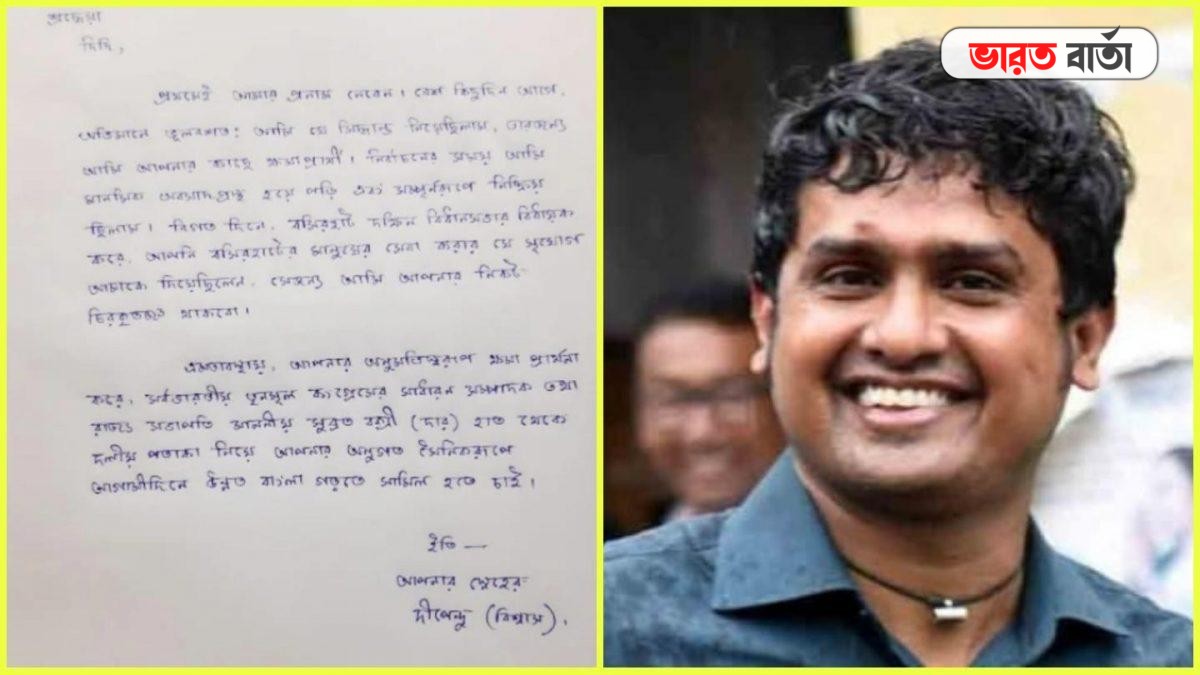 শ্রদ্ধেয়া
দিদি,
প্রথমেই আমার প্রনাম নেবেন। বেশ কিছুদিন আগে,
অভিমানে ভুলবশত: আমি যে সিদ্ধান্ত নিয়েছিলাম, তারজন্য
আমি আপনার কাছে ক্ষমাপ্রার্থী। নির্বাচনের সময় আমি
মানসিক অবসাদগ্রস্থ হয়ে পড়ি এবং সম্পূর্নরূপে নিষ্ক্রিয়
ছিলাম। বিগত দিনে, বসিরহাট দক্ষিন বিধানসভার বিধায়ক
করে, আপনি বসিরহাটের মানুষের সেবা করার যে সুযোগ
আমাকে দিয়েছিলেন, সেজন্য আমি আপনার নিকট
চিরকৃতজ্ঞ থাকবো।
এমতাবস্থায়, আপনার অনুমতিস্বরূপ ক্ষমা প্রার্থনা
করে, সর্বভারতীয় তৃনমূল কংগ্রেসের সাধারন সম্পাদক তথা
রাজ্য সভাপতি মাননীয় সুব্রত বক্সী (দার) হাত থেকে
দলীয় পতাকা নিয়ে আপনার অনুগত সৈনিকরূপে
আগামীদিনে উন্নত বাংলা গড়তে সামিল হতে চাই।
ইতি —
আপনার স্নেহের
দীপেন্দু (বিশ্বাস).
ভারত বার্তা